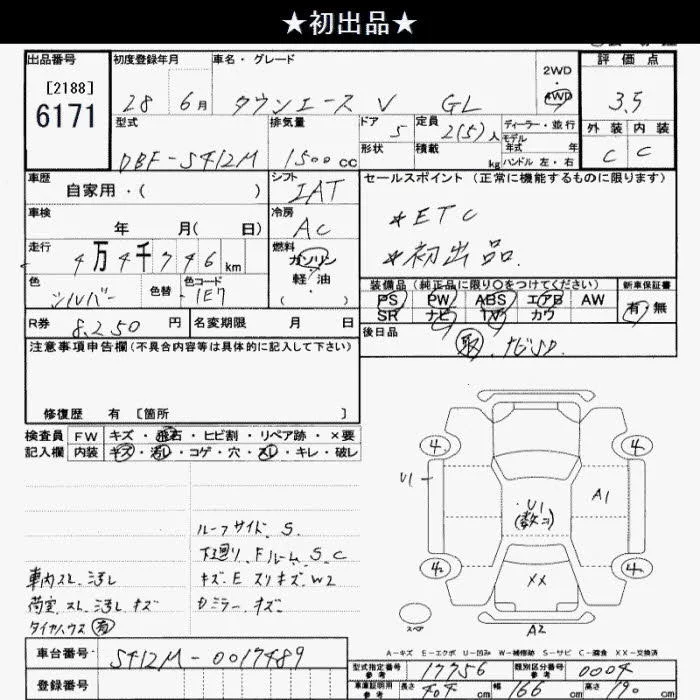 ★初出品★
出品番号 初度登録年月 車名・グレード 2WD ・ 4WD 評価点
[2188]
6171 28 6月 タウンエース V GL 3.5
型式 排気量 ドア 5 定員 2(5)人 ディーラー・並行 外装 内装
形状 積載 kg モデル年式 年
DBF-S412M 1500cc ハンドル 左・右 C C
車歴 シフト セールスポイント (正常に機能するものに限ります)
自家用・( ) IAT
車検 冷房 ★ETC
年 月( 日) AC ★初出品.
走行 燃料
4万4千746km ガソリン
軽・油
色 色替 色コード 装備品 (純正品に限り○をつけてください) 新車保証書
シルバー 1E7 PS PW ABS エアB AW 有 無
SR ナビ TV カワ
R券 8,250 円 名変期限 月 日 後日品
注意事項申告欄(不具合内容等は具体的に記入して下さい) 取 ナビSD.
修復歴 有 [箇所 ]
検査員 FW キズ・飛石・ヒビ割・リペア跡・×要
記入欄 内装 キズ・汚レ・コゲ・穴・スレ・キレ・破レ
4 4
U1 A1
U1
(数コ)
ルーフサイド S.
下廻り. Fルーム. S. C
車内スレ. 汚レ キズ. E スリキズ. W2
4 4
XX
荷室. スレ. 汚レ キズ ミラー. キズ.
タイヤハウス 有
スペア
A2
A-キズ E-エクボ U-凹み W-補修跡 S-サビ C-腐食 XX-交換済
車台番号 S412M-0017489
型式指定番号 参考 17756 類別区分番号 参考 0004
登録番号 車庫証明用 参考 長さ 404 cm 幅 166 cm 高さ 190 cm